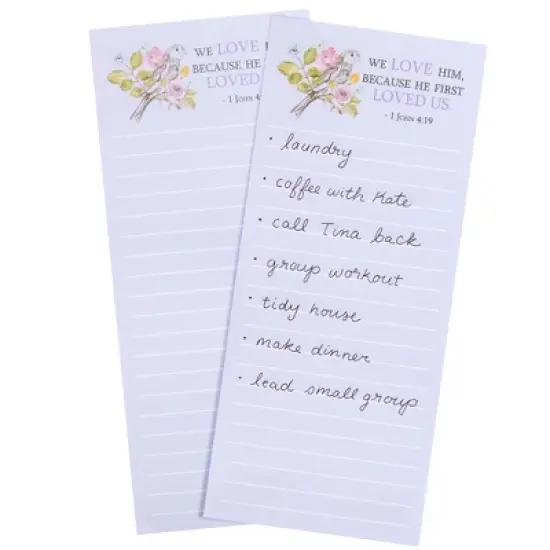 WE LOVE H
BECAUSE HE
LOVED
- 1 JOHN 4
WE LOVE HIM,
BECAUSE HE FIRST
LOVED US.
- 1 JOHN 4:19
• laundry
• coffee with Kate
• call Tina back
• group workout
• tidy house
• make dinner
• lead small group